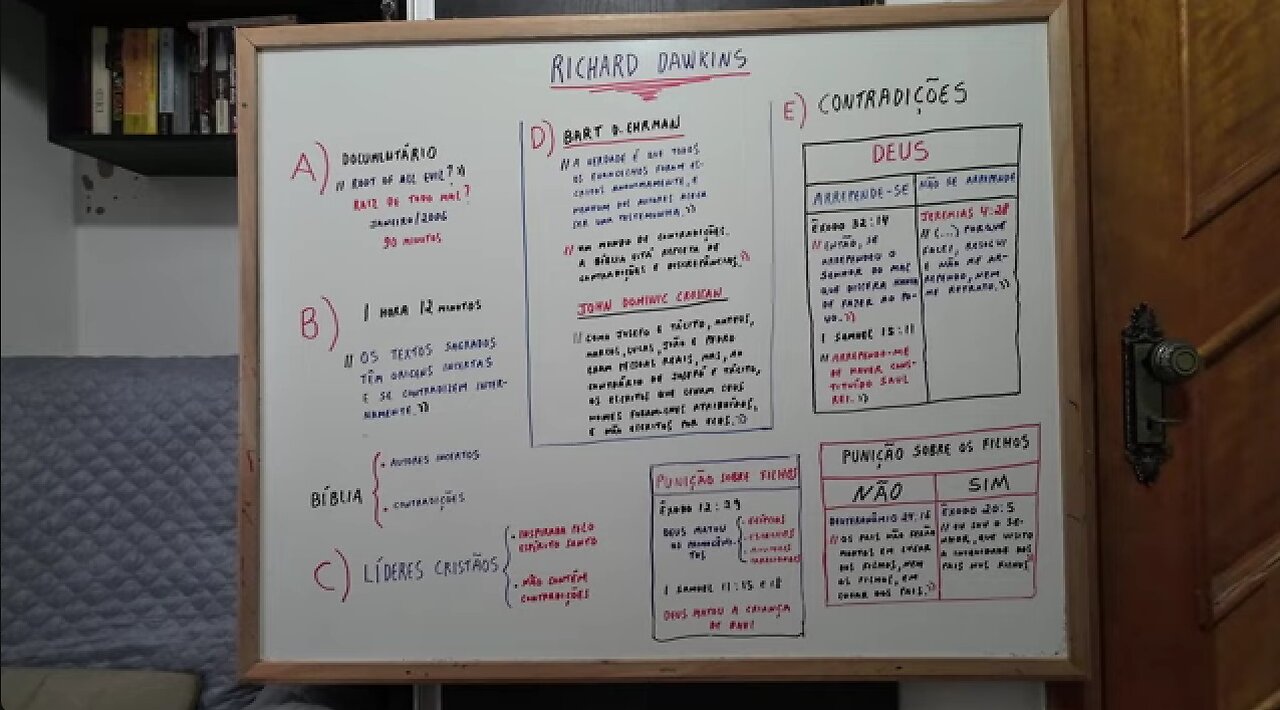 RICHARD DAWKINS
A) DOCUMENTÁRIO
"ROOT OF ALL EVIL?"
RAIZ DE TODO MAL?
JANEIRO/2006
90 MINUTOS
B) 1 HORA 12 MINUTOS
"OS TEXTOS SAGRADOS
TÊM ORIGENS INCERTAS
E SE CONTRADIZEM INTER-
NAMENTE."
BÍBLIA
• AUTORES INCERTOS
• CONTRADIÇÕES
C) LÍDERES CRISTÃOS
• INSPIRADA PELO
ESPÍRITO SANTO
• NÃO CONTÉM
CONTRADIÇÕES
D) BART D. EHRMAN
"A VERDADE É QUE TODOS
OS EVANGELHOS FORAM ES-
CRITOS ANONIMAMENTE, E
NENHUM DOS AUTORES ALEGA
SER UMA TESTEMUNHA."
"UM MUNDO DE CONTRADIÇÕES.
A BÍBLIA ESTÁ REPLETA DE
CONTRADIÇÕES E DISCREPÂNCIAS."
JOHN DOMINIC CROSSAN
"COMO JOSEFO E TÁCITO, MATEUS,
MARCOS, LUCAS, JOÃO E PEDRO
ERAM PESSOAS REAIS, MAS, AO
CONTRÁRIO DE JOSEFO E TÁCITO,
OS ESCRITOS QUE LEVAM SEUS
NOMES FORAM-LHES ATRIBUÍDOS,
E NÃO ESCRITOS POR ELES."
E) CONTRADIÇÕES
DEUS
ARREPENDE-SE
NÃO SE ARREPENDE
ÊXODO 32:14
"ENTÃO, SE
ARREPENDEU O
SENHOR DO MAL
QUE DISSERA HAVIA
DE FAZER AO PO-
VO."
1 SAMUEL 15:11
"ARREPENDO-ME
DE HAVER CONS-
TITUÍDO SAUL
REI."
JEREMIAS 4:28
"(...) PORQUE
FALEI, RESOLVI
E NÃO ME AR-
REPENDO, NEM
ME RETRATO."
PUNIÇÃO SOBRE FILHOS
ÊXODO 12:29
DEUS MATOU
OS PRIMOGÊNI-
TOS
• ANIMAIS
1 SAMUEL 12:15 E 18
DEUS MATOU A CRIANÇA
DE DAVI
PUNIÇÃO SOBRE OS FILHOS
NÃO
SIM
DEUTERONÔMIO 24:16
"OS PAIS NÃO SERÃO
MORTOS EM LUGAR
DOS FILHOS, NEM
OS FILHOS, EM
LUGAR DOS PAIS."
ÊXODO 20:5
"EU SOU O SE-
NHOR, QUE VISITO
A INIQUIDADE DOS
PAIS NOS FILHOS"